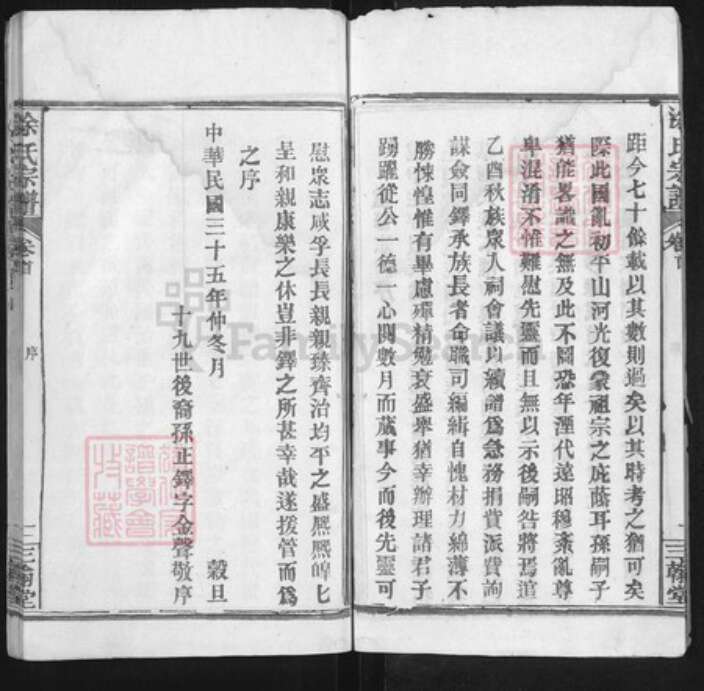 距今七十餘載以其數則過矣以其時考之猶可矣
際此國亂初平山河光復蒙祖宗之庇蔭耳孫嗣子
猶能畧識之無及此不圖恐年湮代遠昭穆紊亂尊
卑混淆不惟難慰先靈而且無以示後嗣咎將焉逭
乙酉秋族眾入祠會議以續譜為急務捐貲派費詢
謀僉同鐸承族長者命職司編緝自愧材力綿薄不
勝悚惶惟有畢慮殫精勉襄盛舉猶幸辦理諸君子
踴躍從公一德一心閱數月而蕆事今而後先靈可
慰眾志咸孚長長親親臻齊治均平之盛熙熙皡皡
呈和親康樂之休豈非鐸之所甚幸哉遂援管而為
之序
中華民國三十五年仲冬月 穀旦
十九世後裔孫正鐸字金聲敬序
涂氏宗譜 卷首 序 二 三翰堂
涂氏宗譜 卷首 三翰堂
FamilySearch
譜學會
特藏